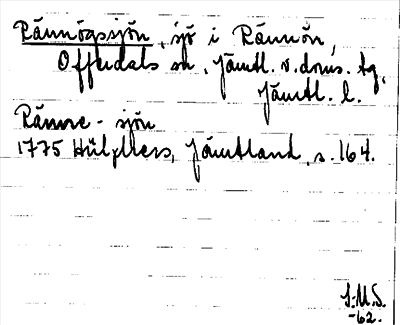 Rännögssjön, sjö i Rännön,
Offerdals sn, Jämtl. v. doms. tg,
Jämtl. l.
Ränne-sjön
1775 Hülphers, Jämtland, s. 164.
S.M.S.
-62.